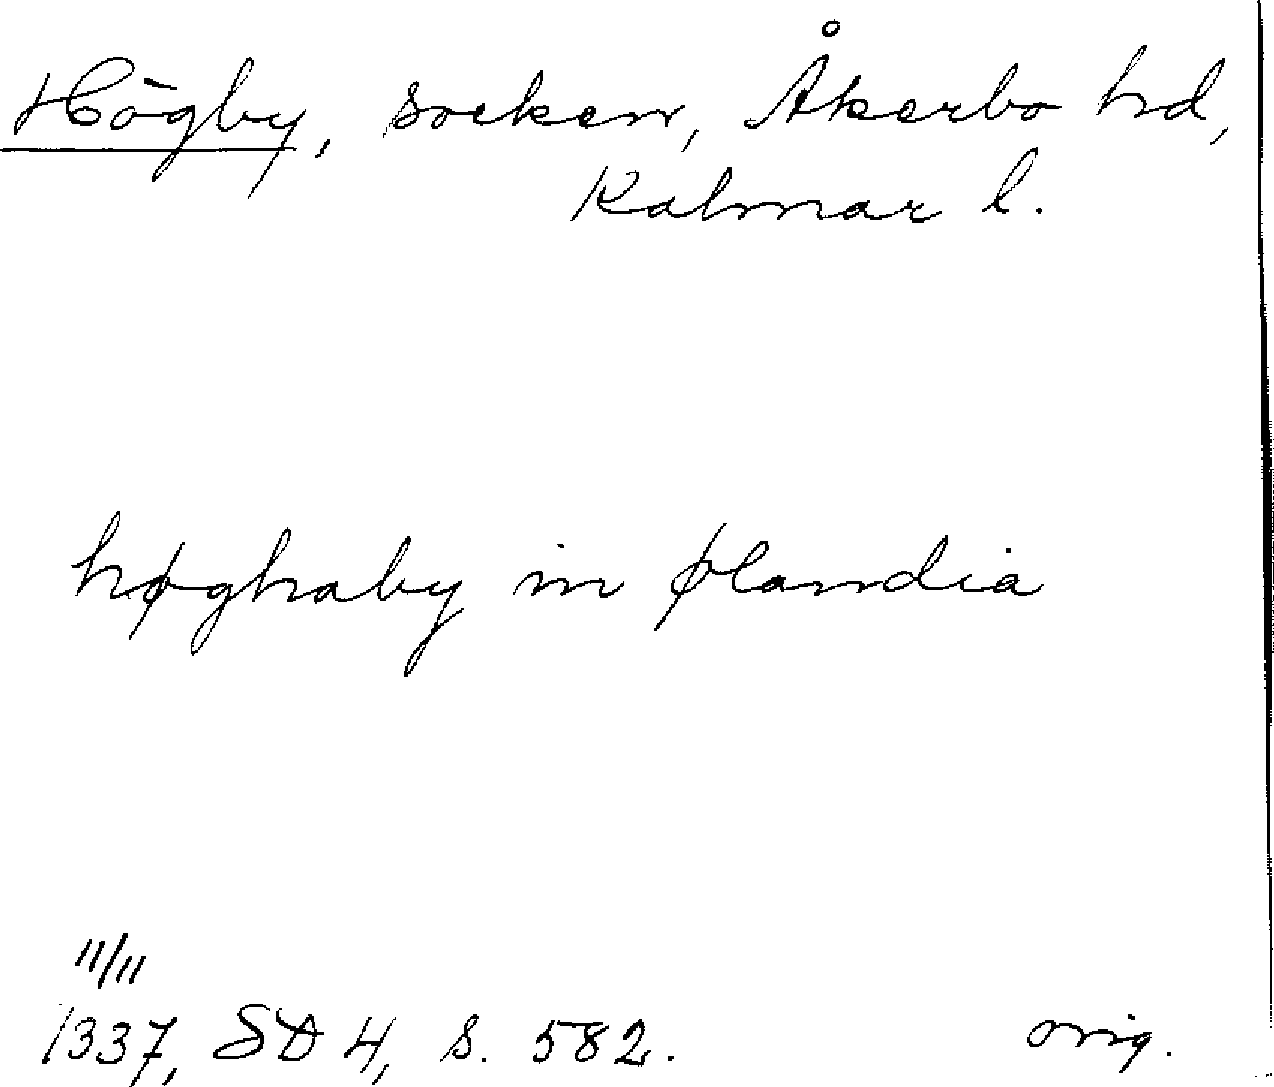 Högby, socken, Åkerbo hd,
Kalmar l.
høghaby in ølandia
11/11
1337, SD 4, s. 582. orig.